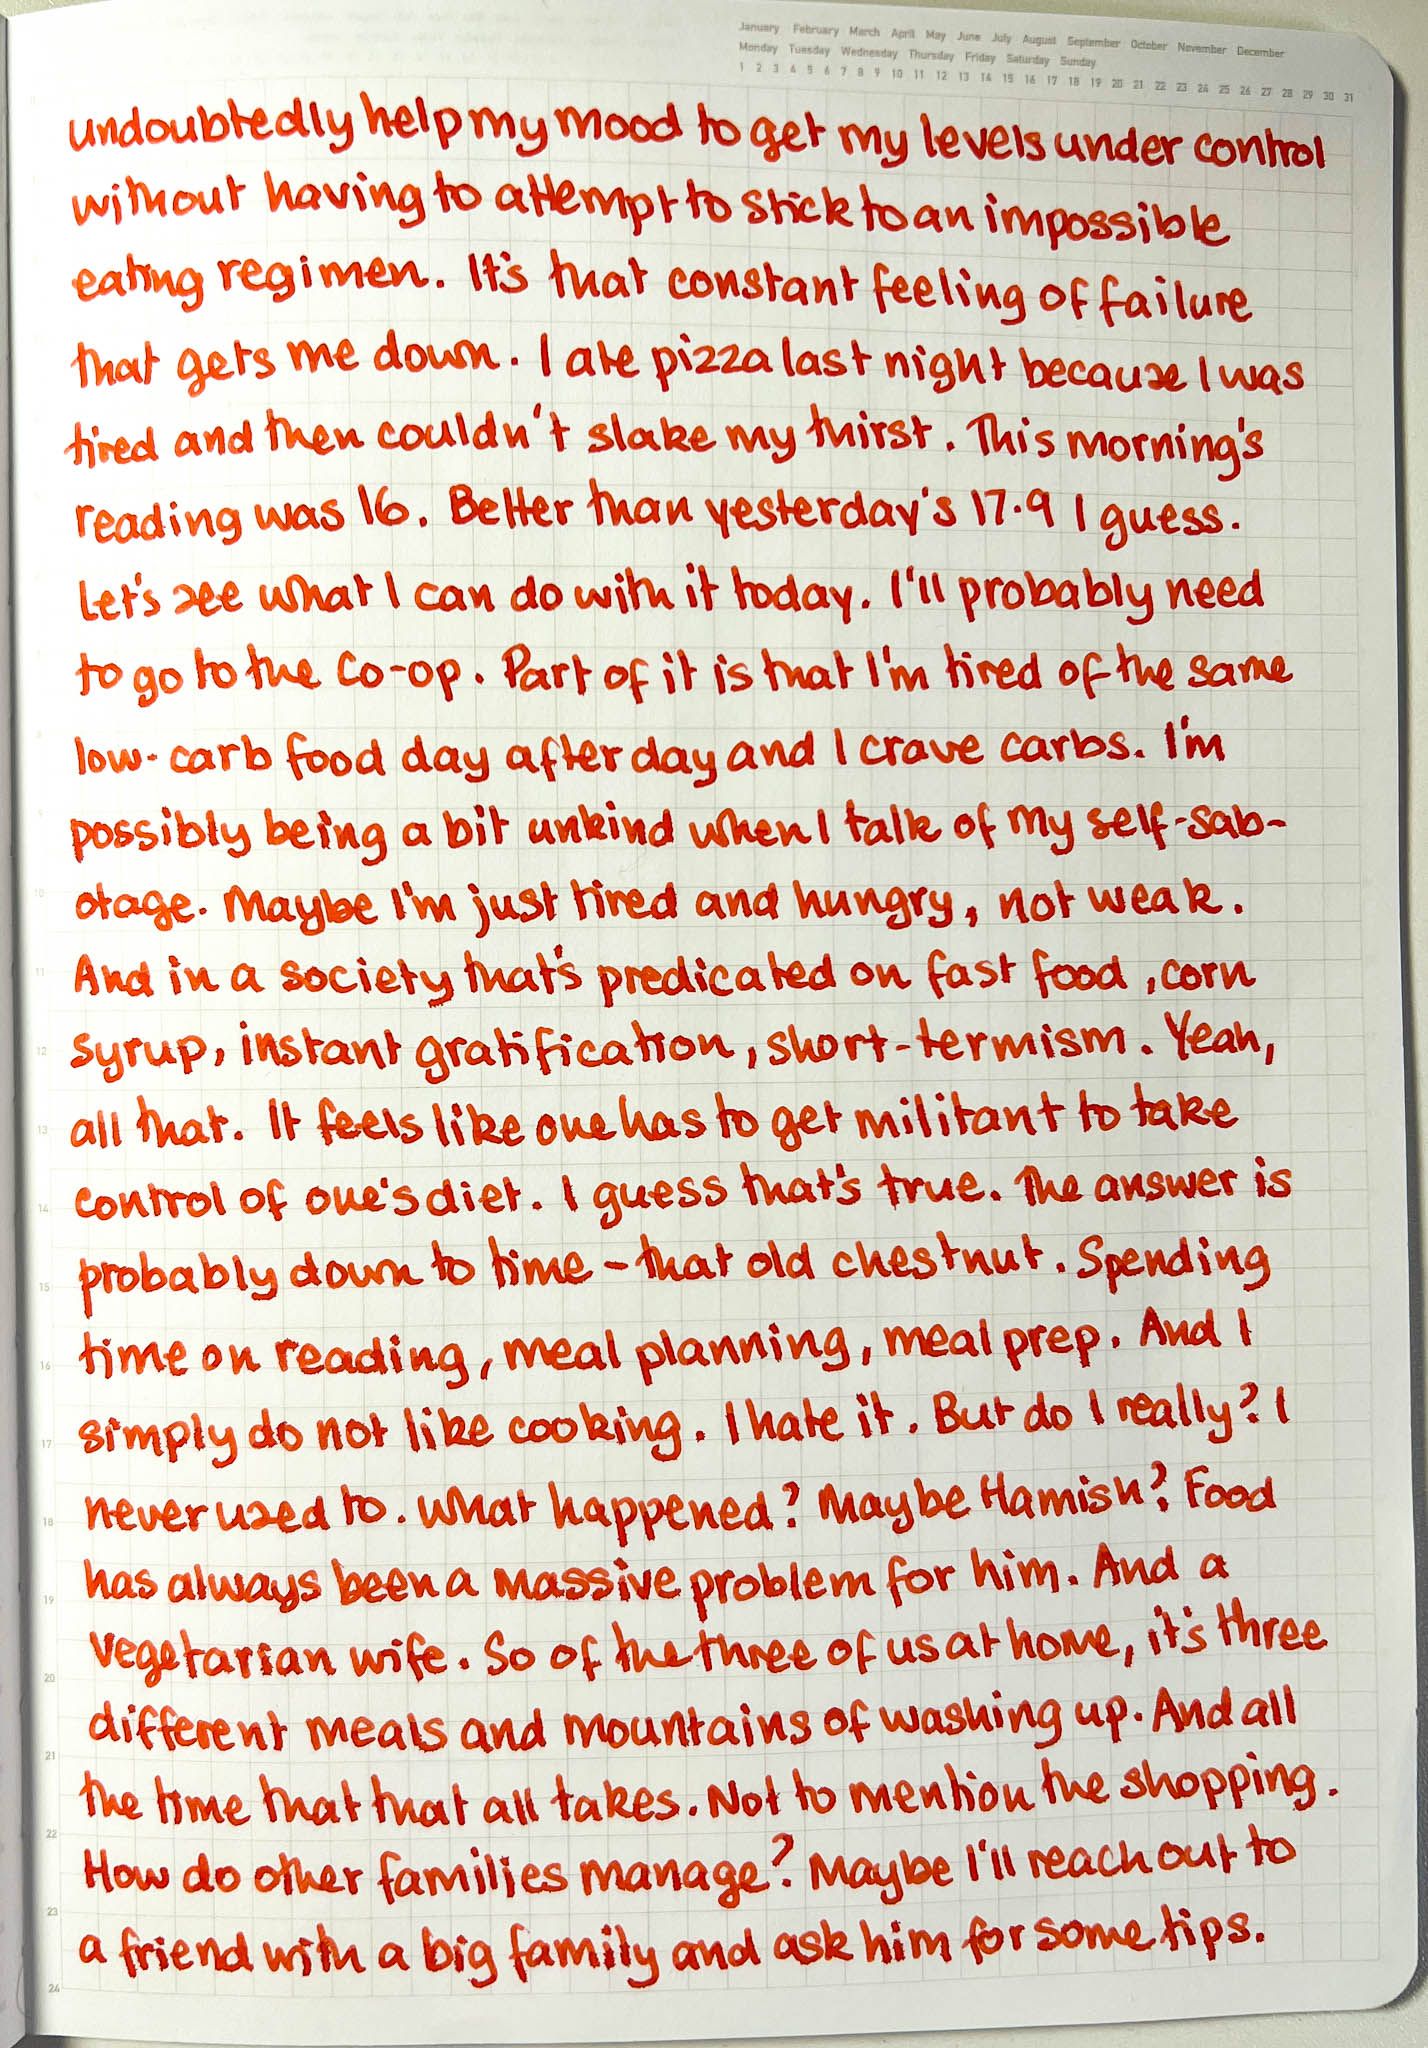 January February March April May June July August September October November December
Monday Tuesday Wednesday Thursday Friday Saturday Sunday
1 2 3 4 5 6 7 8 9 10 11 12 13 14 15 16 17 18 19 20 21 22 23 24 25 26 27 28 29 30 31
undoubtedly help my mood to get my levels under control
without having to attempt to stick to an impossible
eating regimen. It's that constant feeling of failure
that gets me down. I ate pizza last night because I was
tired and then couldn't slake my thirst. This morning's
reading was 16. Better than yesterday's 17.9 I guess.
Let's see what I can do with it today. I'll probably need
to go to the Co-op. Part of it is that I'm tired of the same
low-carb food day after day and I crave carbs. I'm
possibly being a bit unkind when I talk of my self-sab-
otage. Maybe I'm just tired and hungry, not weak.
And in a society that's predicated on fast food, corn
syrup, instant gratification, short-termism. Yeah,
all that. It feels like one has to get militant to take
control of one's diet. I guess that's true. The answer is
probably down to time - that old chestnut. Spending
time on reading, meal planning, meal prep. And I
simply do not like cooking. I hate it. But do I really? I
never used to. What happened? Maybe Hamish? Food
has always been a massive problem for him. And a
vegetarian wife. So of the three of us at home, it's three
different meals and mountains of washing up. And all
the time that that all takes. Not to mention the shopping.
How do other families manage? Maybe I'll reach out to
a friend with a big family and ask him for some tips.
10
11
12
13
14
15
16
17
18
19
20
21
22
23
24